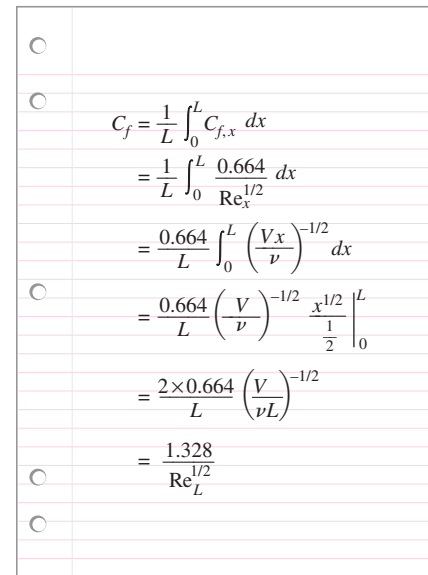 C_f = \frac{1}{L} \int_0^L C_{f,x} dx
= \frac{1}{L} \int_0^L \frac{0.664}{Re_x^{1/2}} dx
= \frac{0.664}{L} \int_0^L \left( \frac{Vx}{\nu} \right)^{-1/2} dx
= \frac{0.664}{L} \left( \frac{V}{\nu} \right)^{-1/2} \left. \frac{x^{1/2}}{\frac{1}{2}} \right|_0^L
= \frac{2×0.664}{L} \left( \frac{V}{\nu L} \right)^{-1/2}
= \frac{1.328}{Re_L^{1/2}}